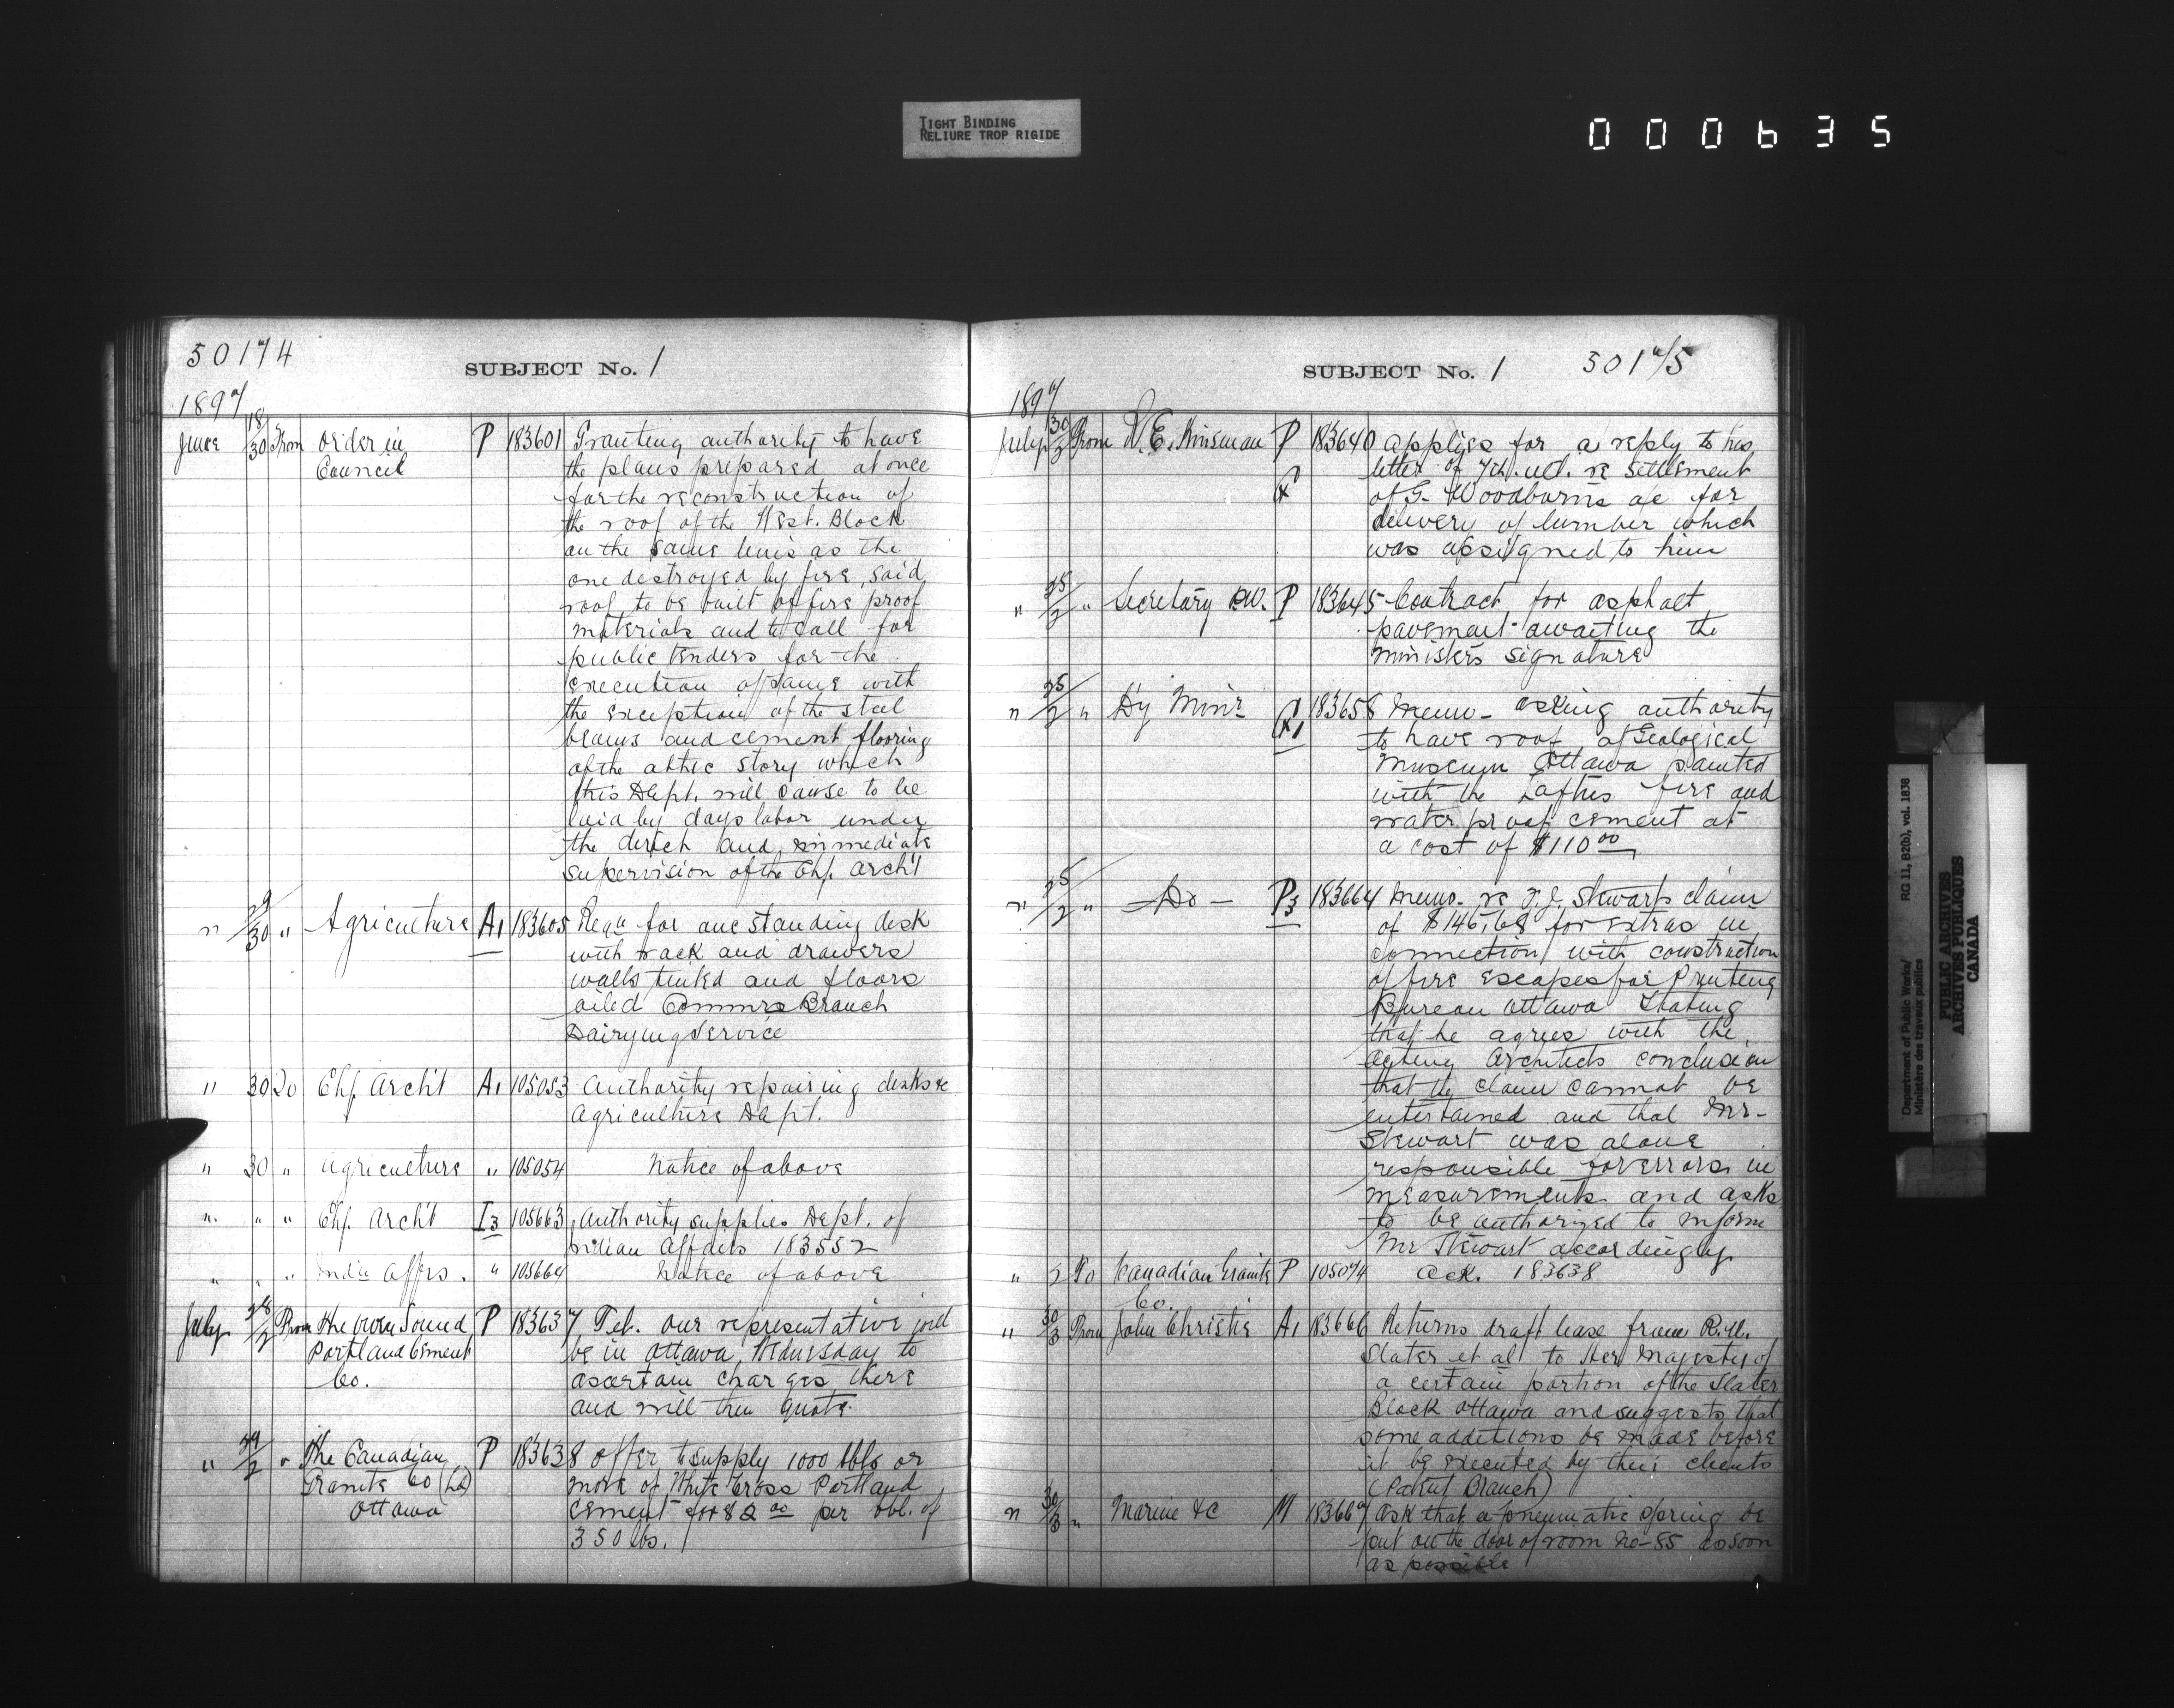 TIGHT BINDING
RELIURE TROP RIGIDE
000635
50174
SUBJECT No. 1
1897
June 18/30 From Order in P 183601 Granting authority to have
Council the plans prepared at once
for the reconstruction of
the roof of the West. Block
on the same lines as the
one destroyed by fire, said
roof to be built of fire proof
materials and to call for
public tenders for the
execution of same with
the exception of the steel
beams and cement flooring
of the attic story which
this Dept. will cause to be
laid by days labor under
the direct and immediate
supervision of the Chf. Archt
" 29/30 " Agriculture A1 183605 Reqn for one standing desk
with rack and drawers
walls tinted and floors
oiled Commrs Branch
Dairying Service
" 30 To Chf Archt A1 105053 Authority repairing desks &c
Agriculture Dept.
" 30 " Agriculture " 105054 Notice of above
" " " Chf. Archt I3 105663 Authority supplies Dept. of
Indian Affairs 183552
" " " Indn Affrs. " 105664 Notice of above
July 28/2 From The Owen Sound P 183637 Tel. our representative will
Portland Cement be in Ottawa Wednesday to
Co. ascertain charges there
and will then quote.
" 29/2 " The Canadian P 183638 Offer to supply 1000 bbls or
Granite Co (Ld) more of White Cross Portland
Ottawa cement for $2.00 per bbl. of
350 lbs.
SUBJECT No. 1 50175
1897
July 30/2 From W.E. Kinsman P 183640 applies for a reply to his
letter of 7th. ult. re settlement
of G. Woodburns a/c for
delivery of lumber which
was assigned to him
" 25/2 " Secretary P.W. P 183645 Contract for asphalt
pavement awaiting the
Ministers signature
" 25/2 " Dy Minr 183658 Memo - asking authority
to have roof of Geological
Museum Ottawa painted
with the fire and
water proof cement at
a cost of $110.00
" 25/2 " - Do - P3 183664 Memo. re T.J. Stewarts claim
of $146.68 for extras in
connection with construction
of fire escapes for Printing
Bureau Ottawa Stating
that he agrees with the
acting Architects conclusion
that the claim cannot be
entertained and that Mr-
Stewart was alone
responsible for errors in
measurements and asks
to be authorized to inform
Mr Stewart accordingly.
" 2 To Canadian Granite P 105074 Ack. 183638
Co.
" 30/3 From John Christie A1 183666 Returns draft lease from R.H.
Slater et al to Her Majesty of
a certain portion of the Slater
Block Ottawa and suggests that
some additions be made before
it be executed by their clients
(Patent Branch)
" 30/3 " Marine &c M 183667 Ask that a pneumatic spring be
put on the door of room No-85 as soon
as possible
Department of Public Works/ RG 11, B2(b), vol. 1838
Ministère des travaux publics
PUBLIC ARCHIVES
ARCHIVES PUBLIQUES
CANADA